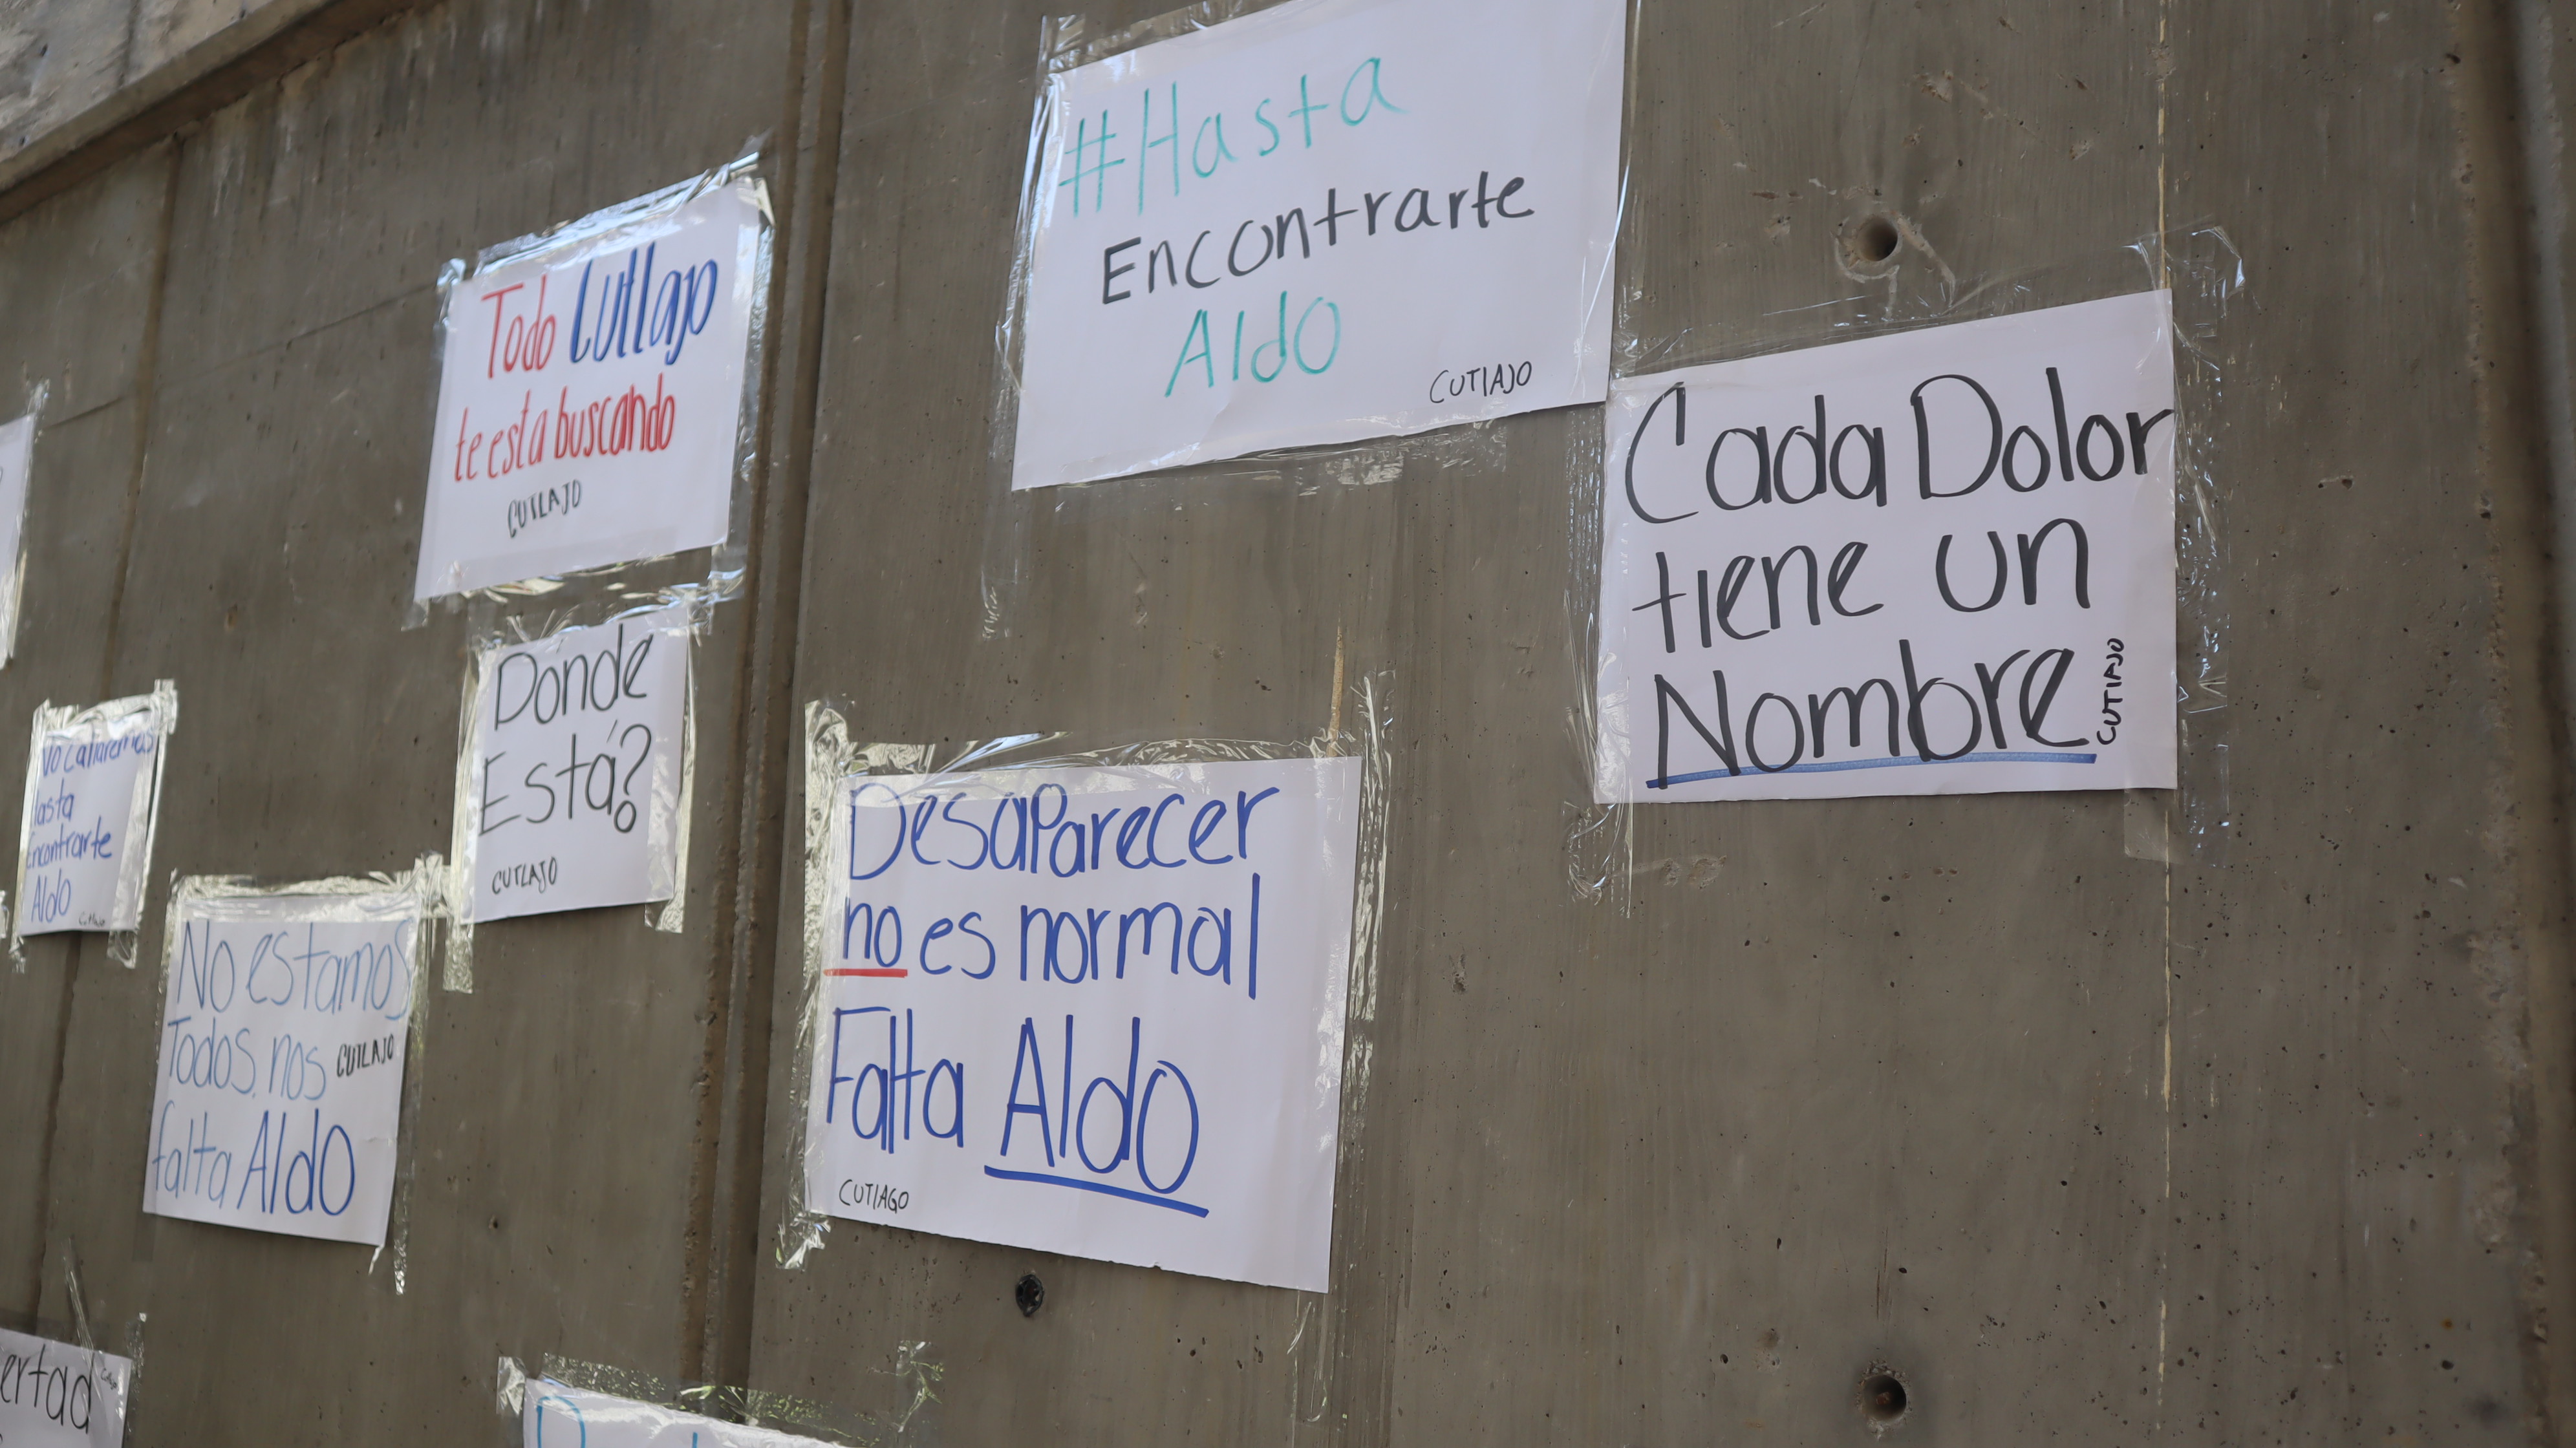 #Hasta
Encontrarte
Aldo
CUTlAJO
Todo Cutlajo
te esta buscando
CUTLAJO
Cada Dolor
tiene un
Nombre
CUTlAJO
Donde
Está?
CUTLAJO
No callaremos
Hasta
Encontrarte
Aldo
Cutlajo
Desaparecer
no es normal
Falta Aldo
CUTlAGO
No estamos
Todos, nos
CUTLAJO
falta Aldo
ertad